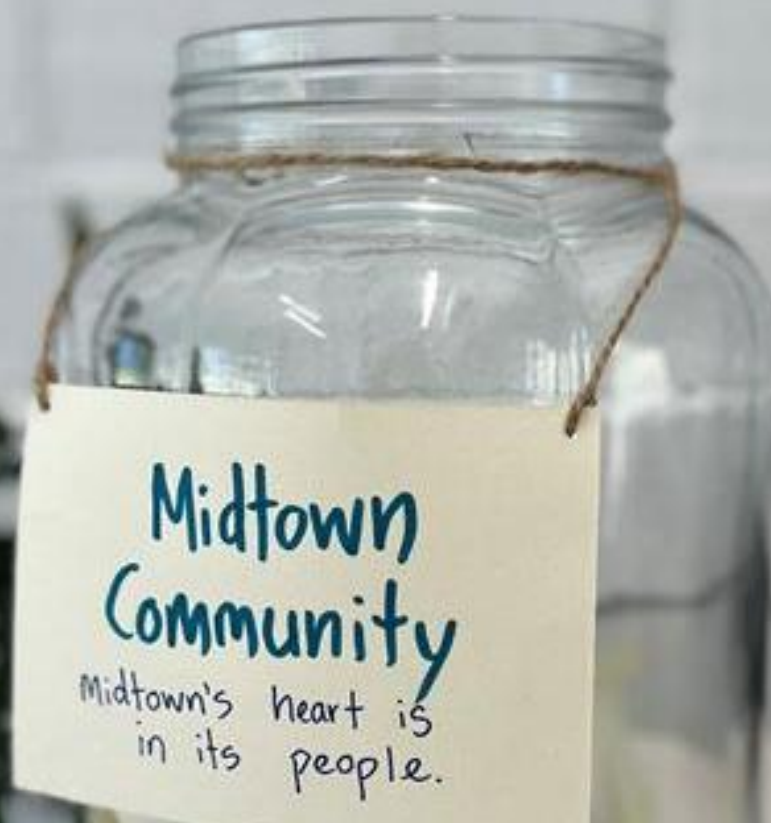 Midtown
Community
Midtown's heart is
in its people.